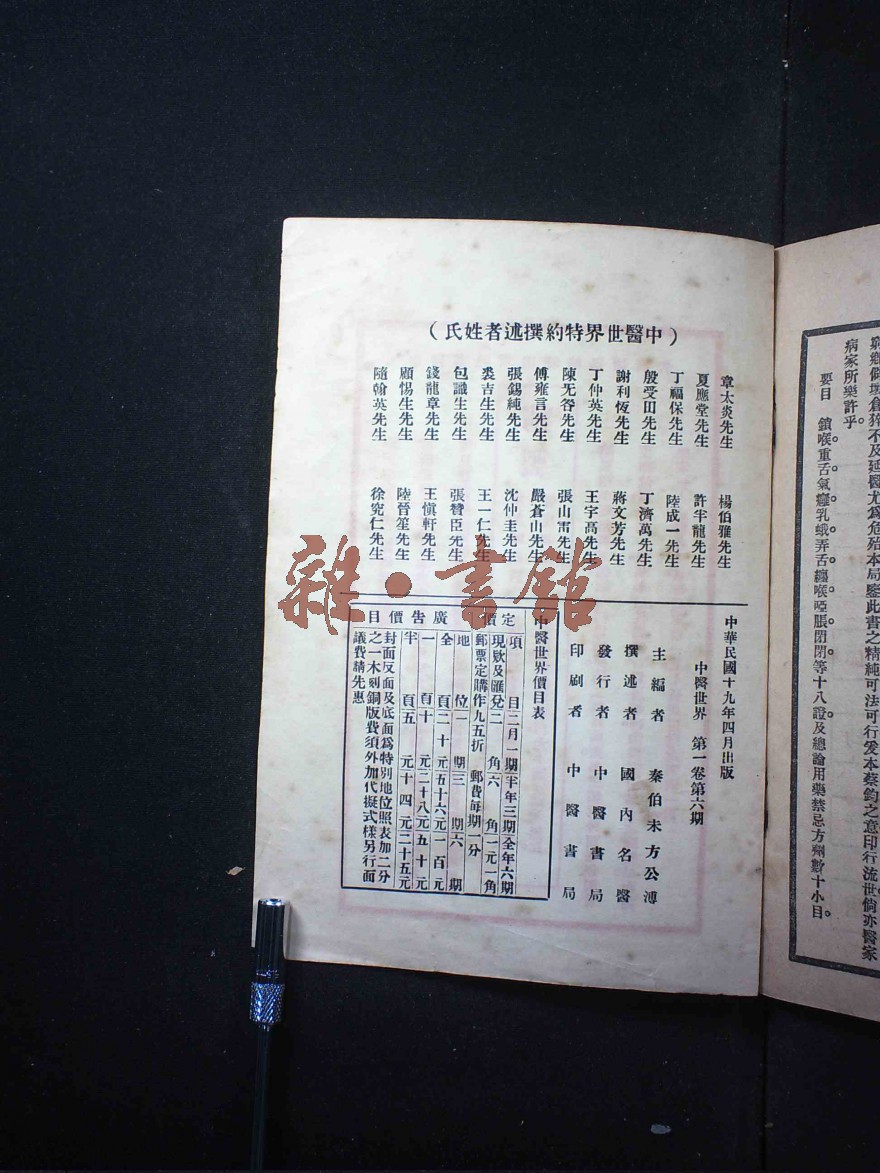 窮鄉僻壤倉猝不及延醫尤爲危殆本局鑒此書之精純可法可行爰本蔡鈞之意印行流世倘亦醫家
病家所樂許乎。
要目　鎖喉。重舌。氣癰。乳蛾。弄舌。纏喉。啞脹。閉閉。等十八證及總論用藥禁忌方劑數十小目。
（中醫世界特約撰述者姓氏）
章太炎先生
夏應堂先生
丁福保先生
殷受田先生
謝利恆先生
丁仲英先生
陳无咎先生
傅雍言先生
張錫純先生
裘吉生先生
包識生先生
錢龍章先生
顧惕生先生
隨翰英先生
楊伯雅先生
許半龍先生
陸成一先生
丁濟萬先生
蔣文芳先生
王宇高先生
張山雷先生
嚴蒼山先生
沈仲圭先生
王一仁先生
張贊臣先生
王慎軒先生
陸晉笙先生
徐究仁先生
中華民國十九年四月出版
中醫世界　第一卷第六期
主編者　秦伯未方公溥
撰述者　國內名醫
發行者　中醫書局
印刷者　中醫書局
中醫世界價目表
定價
項目　二月一期　半年三期　全年六期
現欵及匯兌　二角　六角　一元一角
郵票定購作九五折　郵費每期一分
廣告價目
地位　一期　三期　六期
全頁　二十元　五十六元　一百元
一頁　十元　二十八元　五十元
半頁　五元　十四元　二十五元
封面反面及底面爲特別地位照表加二分
之一木刻銅版費須外加代擬式樣另行面
議費請先惠
雜·書館